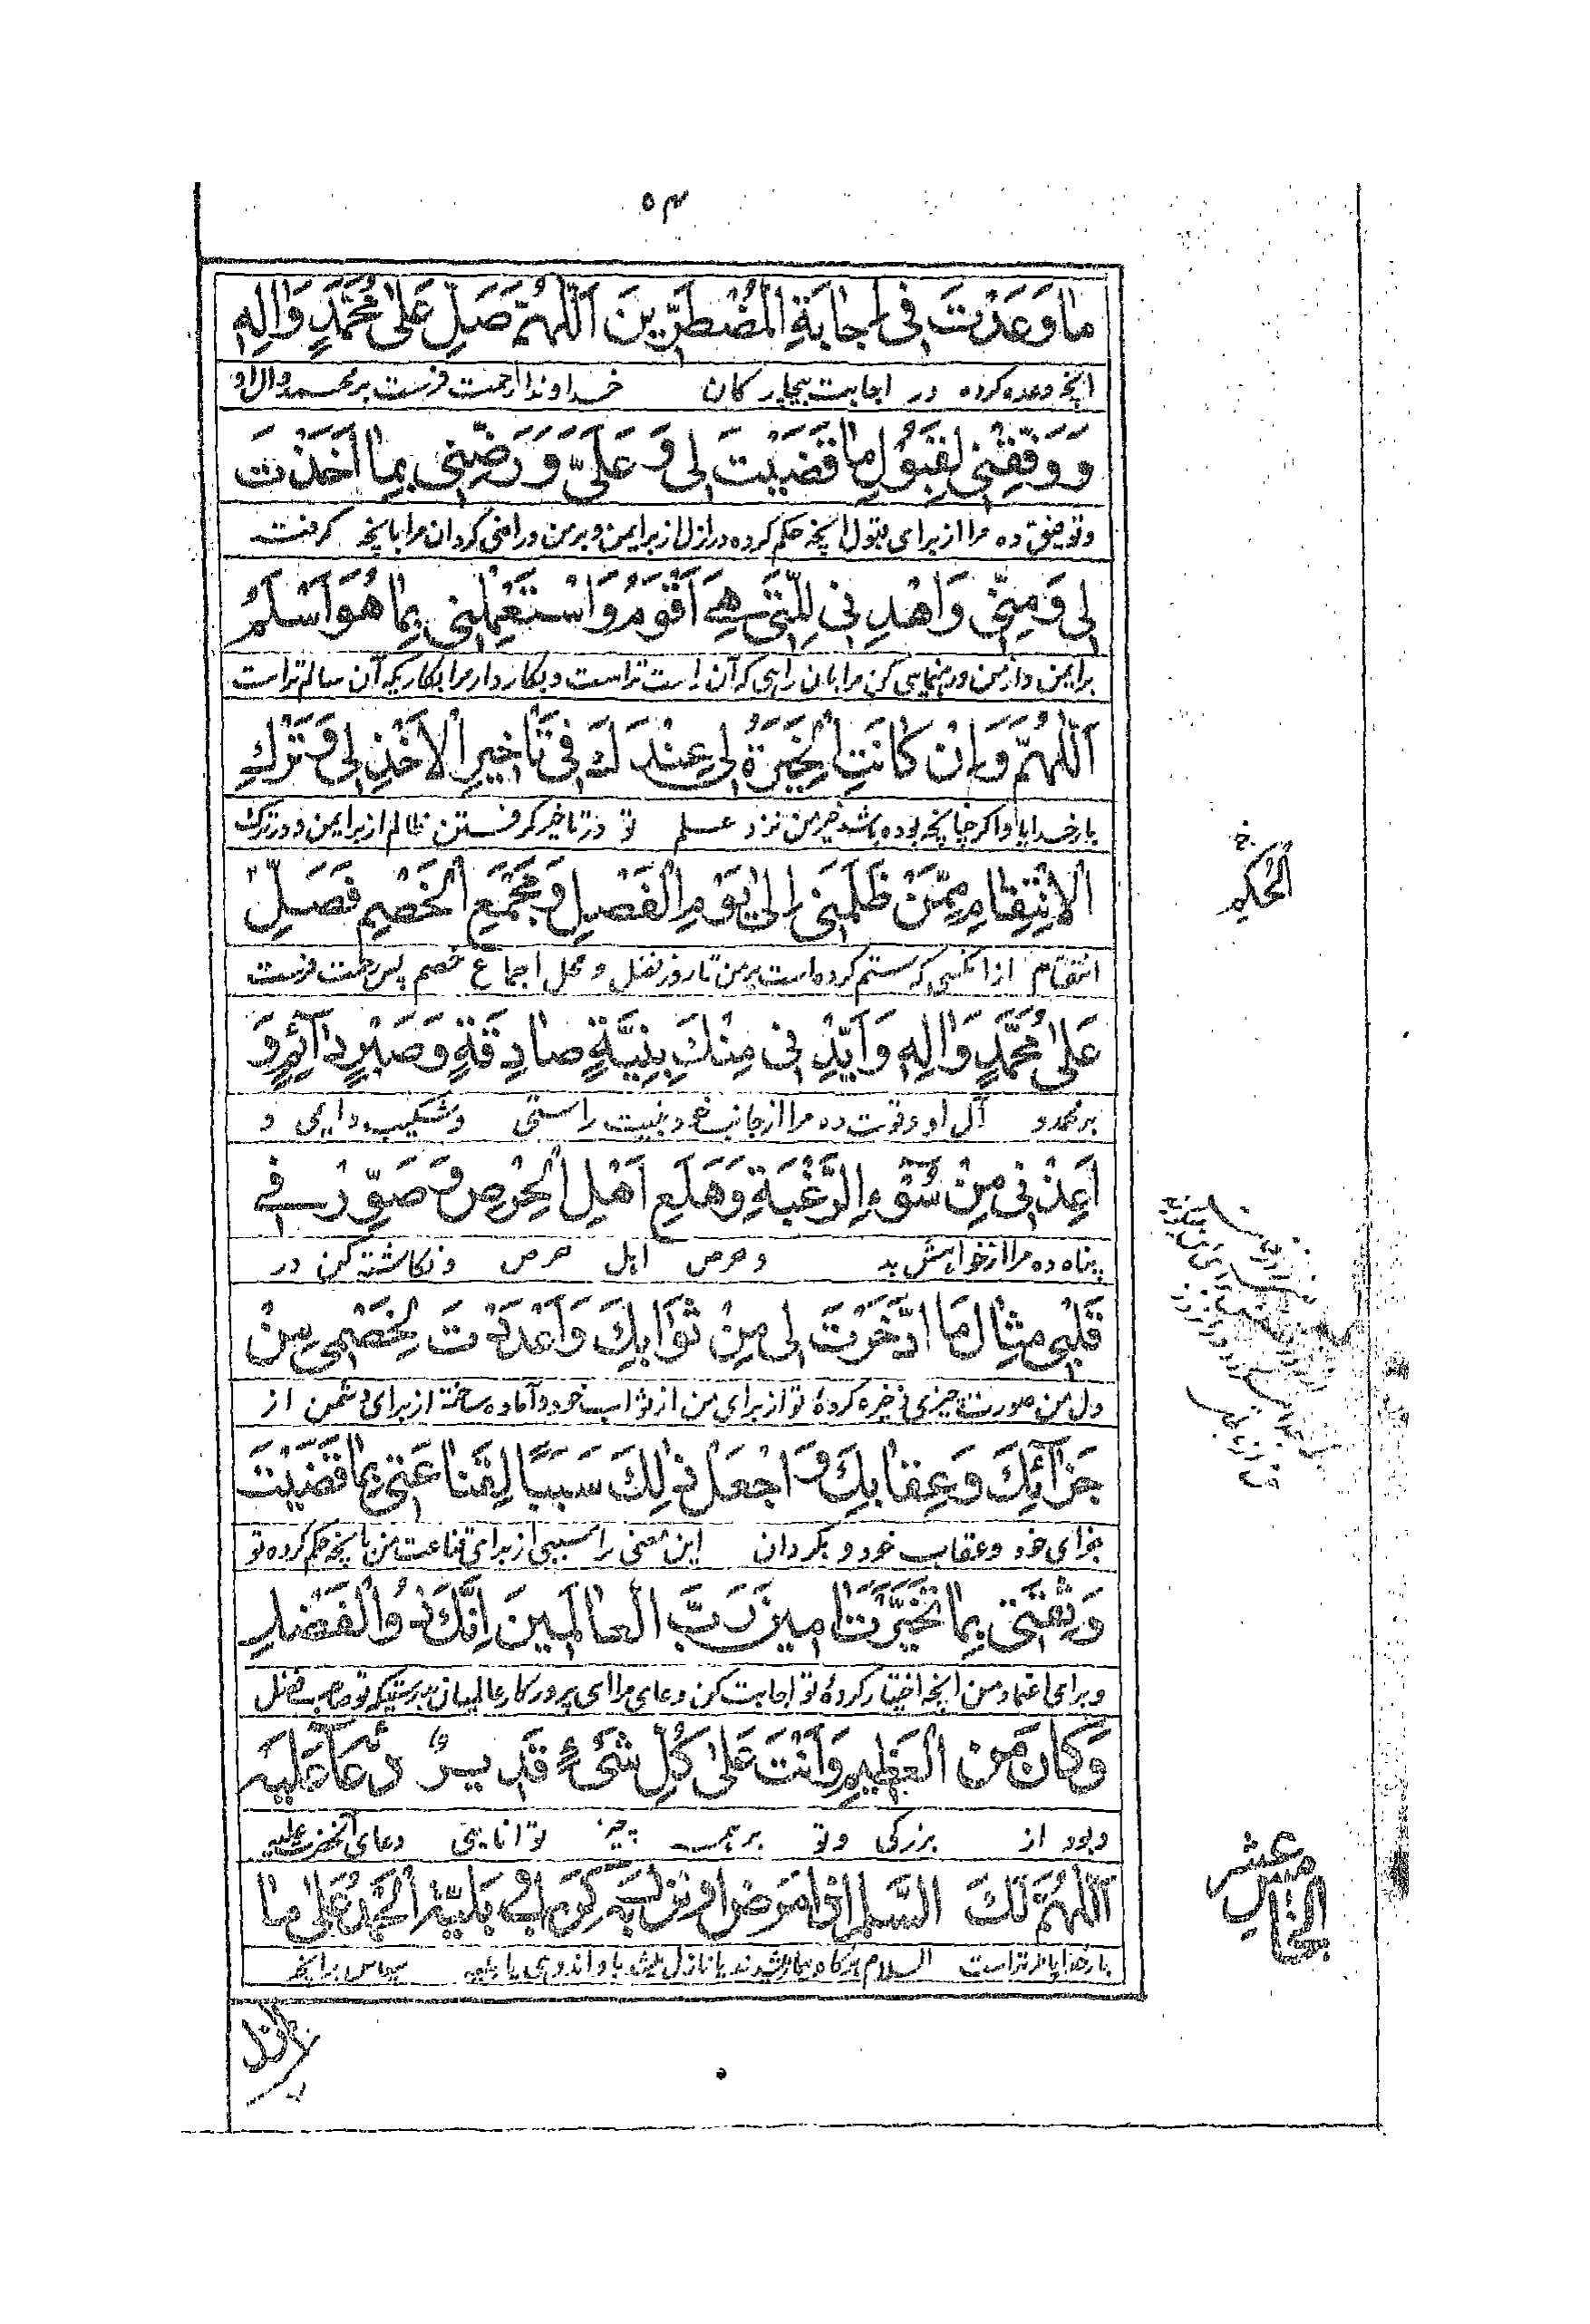 ۵۴
مَا وَعَدْتَ فِی إِجَابَةِ الْمُضْطَرِّینَ اَللّٰهُمَّ صَلِّ عَلٰی مُحَمَّدٍ وَاٰلِهِ
آنچه وعده کرده در اجابت بیچارکان خداوندا رحمت فرست بر محمد و ال او
وَوَفِّقْنِی لِقَبُولِ مَا قَضَیْتَ لِی وَعَلَیَّ وَرَضِّنِی بِمَا اَخَذْتَ
و توفیق ده مرا از برای قبول آنچه حکم کرده در ازل از برایمن و بر من و راضی کردان مرا بآنچه کرفت
لِی وَمِنِّی وَاهْدِنِی لِلَّتِی هِیَ اَقْوَمُ وَاسْتَعْمِلْنِی بِمَا هُوَ اَسْلَمُ
برایمن و از من و رهنمایی کن مرا بان راهی که آن راست تراست و بکار دار مرا بکاریکه آن سالم تراست
اَللّٰهُمَّ وَاِنْ کَانَتِ الْخِیَرَةُ لِی عِنْدَكَ فِی تَأْخِیرِ الْاَخْذِ لِی وَتَرْكِ
بار خدایا و اکر چنانچه بوده باشد خیر من نزد علم تو در تاخیر کرفتن ظالم از برایمن و در ترک
الْاِنْتِقَامِ مِمَّنْ ظَلَمَنِی اِلٰی یَوْمِ الْفَصْلِ وَمَجْمَعِ الْخَصْمِ فَصَلِّ
انتقام از آنکسی که ستم کرده است بر من تا روز فصل و محل اجماع خصم پس رحمت فرست
عَلٰی مُحَمَّدٍ وَاٰلِهِ وَاَیِّدْنِی مِنْكَ بِنِیَّةٍ صَادِقَةٍ وَصَبْرٍ دَائِمٍ وَ
بر محمد و آل او و قوت ده مرا از جانب خود بنیت راستی و شکیب دایمی و
اَعِذْنِی مِنْ سُوۤءِ الرَّغْبَةِ وَهَلَعِ اَهْلِ الْحِرْصِ وَصَوِّرْ فِی
پناه ده مرا از خواهش بد و حرص اهل حرص و نکاشته کن در
قَلْبِی مِثَالَ مَا ادَّخَرْتَ لِی مِنْ ثَوَابِكَ وَاَعْدَدْتَ لِخَصْمِی مِنْ
دل من صورت چیزی ذخیره کردهٔ تو از برای من از ثواب خود و آماده ساختهٔ از برای دشمن از
جَزَائِكَ وَعِقَابِكَ وَاجْعَلْ ذٰلِكَ سَبَبًا لِقَنَاعَتِی بِمَا قَضَیْتَ
جزای خود و عقاب خود و بکردان این معنی را سببی از برای قناعت من بانچه حکم کرده تو
وَثِقَتِی بِمَا تَخَیَّرْتَ اٰمِینَ رَبَّ الْعَالَمِینَ اِنَّكَ ذُو الْفَضْلِ
و برای اعتماد من انچه اختیار کردهٔ تو اجابت کن دعای مرا ای پروردکار عالمیان بدرستیکه تو صاحب فضل
الْعَظِیمِ وَاَنْتَ عَلٰی كُلِّ شَیْءٍ قَدِیرٌ وَكَانَ مِنْ دُعَآئِهِ عَلَیْهِ
و بود از بزرکی و تو بر همه چیز توانایی دعای آنحضرت علیه
السَّلَام اِذَا مَرِضَ اَوْ نَزَلَ بِهِ کَرْبٌ اَوْ بَلِیَّةٌ اَللّٰهُمَّ لَكَ الْحَمْدُ عَلٰی مَا
بار خدایا مر تراست السلام هرکاه بیمار میشدند یا نازل میشد باو اندوهی یا بلیه سپاس بر انچه
خ
الْحُكْمِ
الخامس عشر